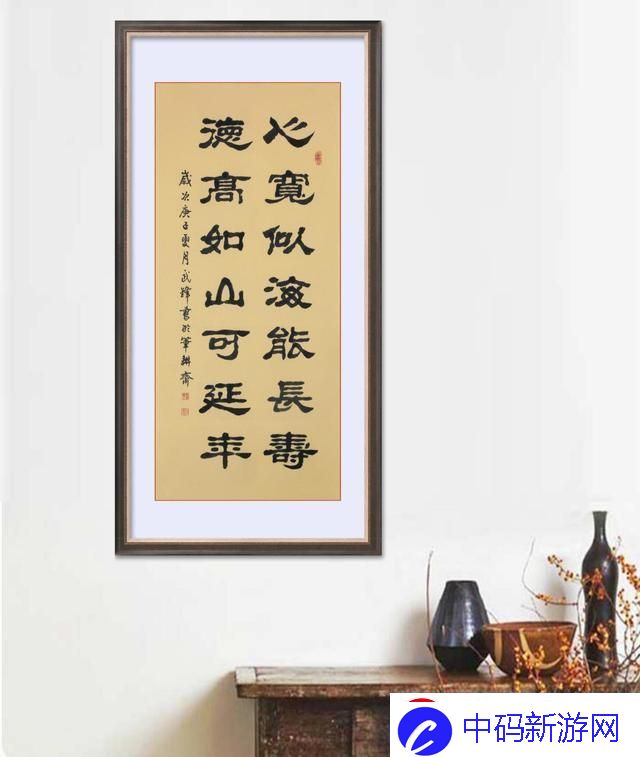 心寬似海能長壽
德高如山可延年
歲次庚子夏月武鋒書於筆耕齋
中码新游网